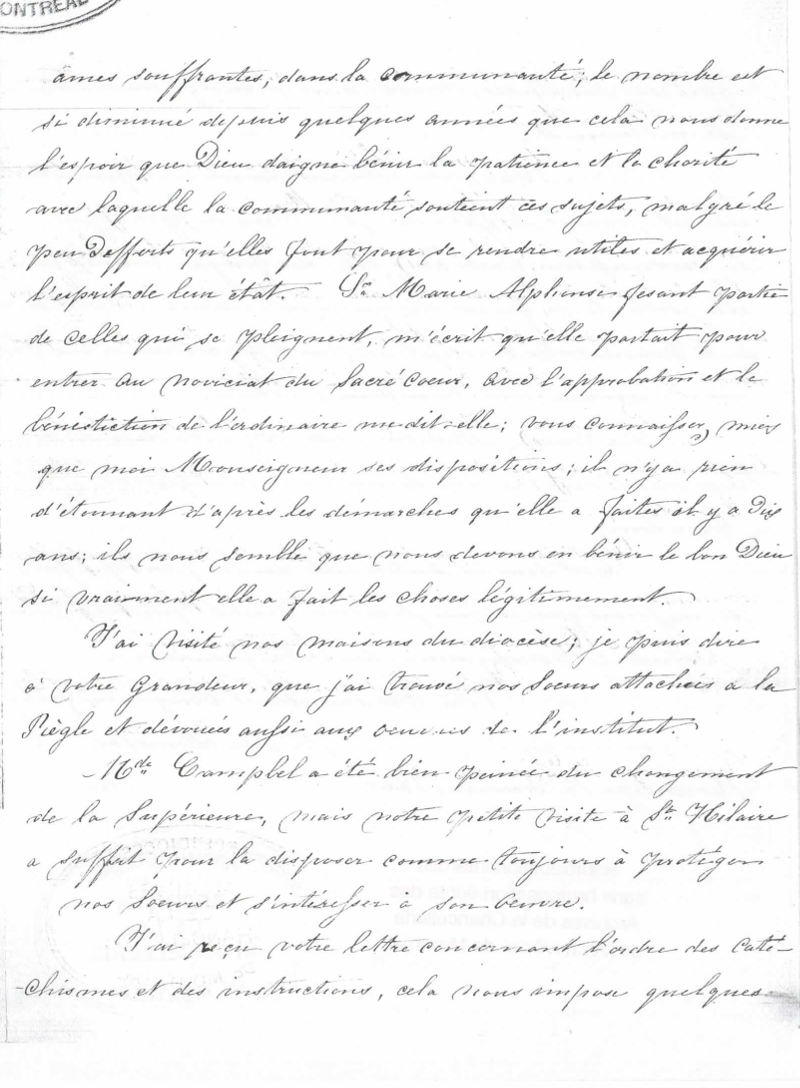 MONTRÉAL
âmes souffrantes, dans la communauté; le nombre est
si diminué depuis quelques années que cela nous donne
l'espoir que Dieu daigne bénir la patience et la charité
avec laquelle la communauté soutient ces sujets, malgré le
peu d'efforts qu'elles font pour se rendre utiles et acquérir
l'esprit de leur êtât. Sr Marie Alphonse fesant partie
de celles qui se pleignent, m'écrit qu'elle partait pour
entrer au noviciat du Sacré Coeur, avec l'approbation et la
bénédiction de l'ordinaire me dit-elle; vous connaisser, mieux
que moi Monseigneur ses dispositions; il n'y a rien
d'étonnant d'après les démarches qu'elle a faites il y a Dix
ans; ils nous semble que nous devons en bénir le bon Dieu
si vraiment elle a fait les choses légitimement.
J'ai visité nos maisons du diocèse; je puis dire
à votre Grandeur, que j'ai trouvé nos Soeurs attachées a la
Règle et dévouées aussi aux oeuvres de l'institut.
Mde Campbel a été bien peinée du changement
de la Supérieure, mais notre petite visite à St Hilaire
a suffit pour la disposer comme toujours à protéger
nos Soeurs et s'intéresser a son oeuvre.
J'ai reçu votre lettre concernant l'ordre des caté-
chismes et des instructions, cela nous impose quelques